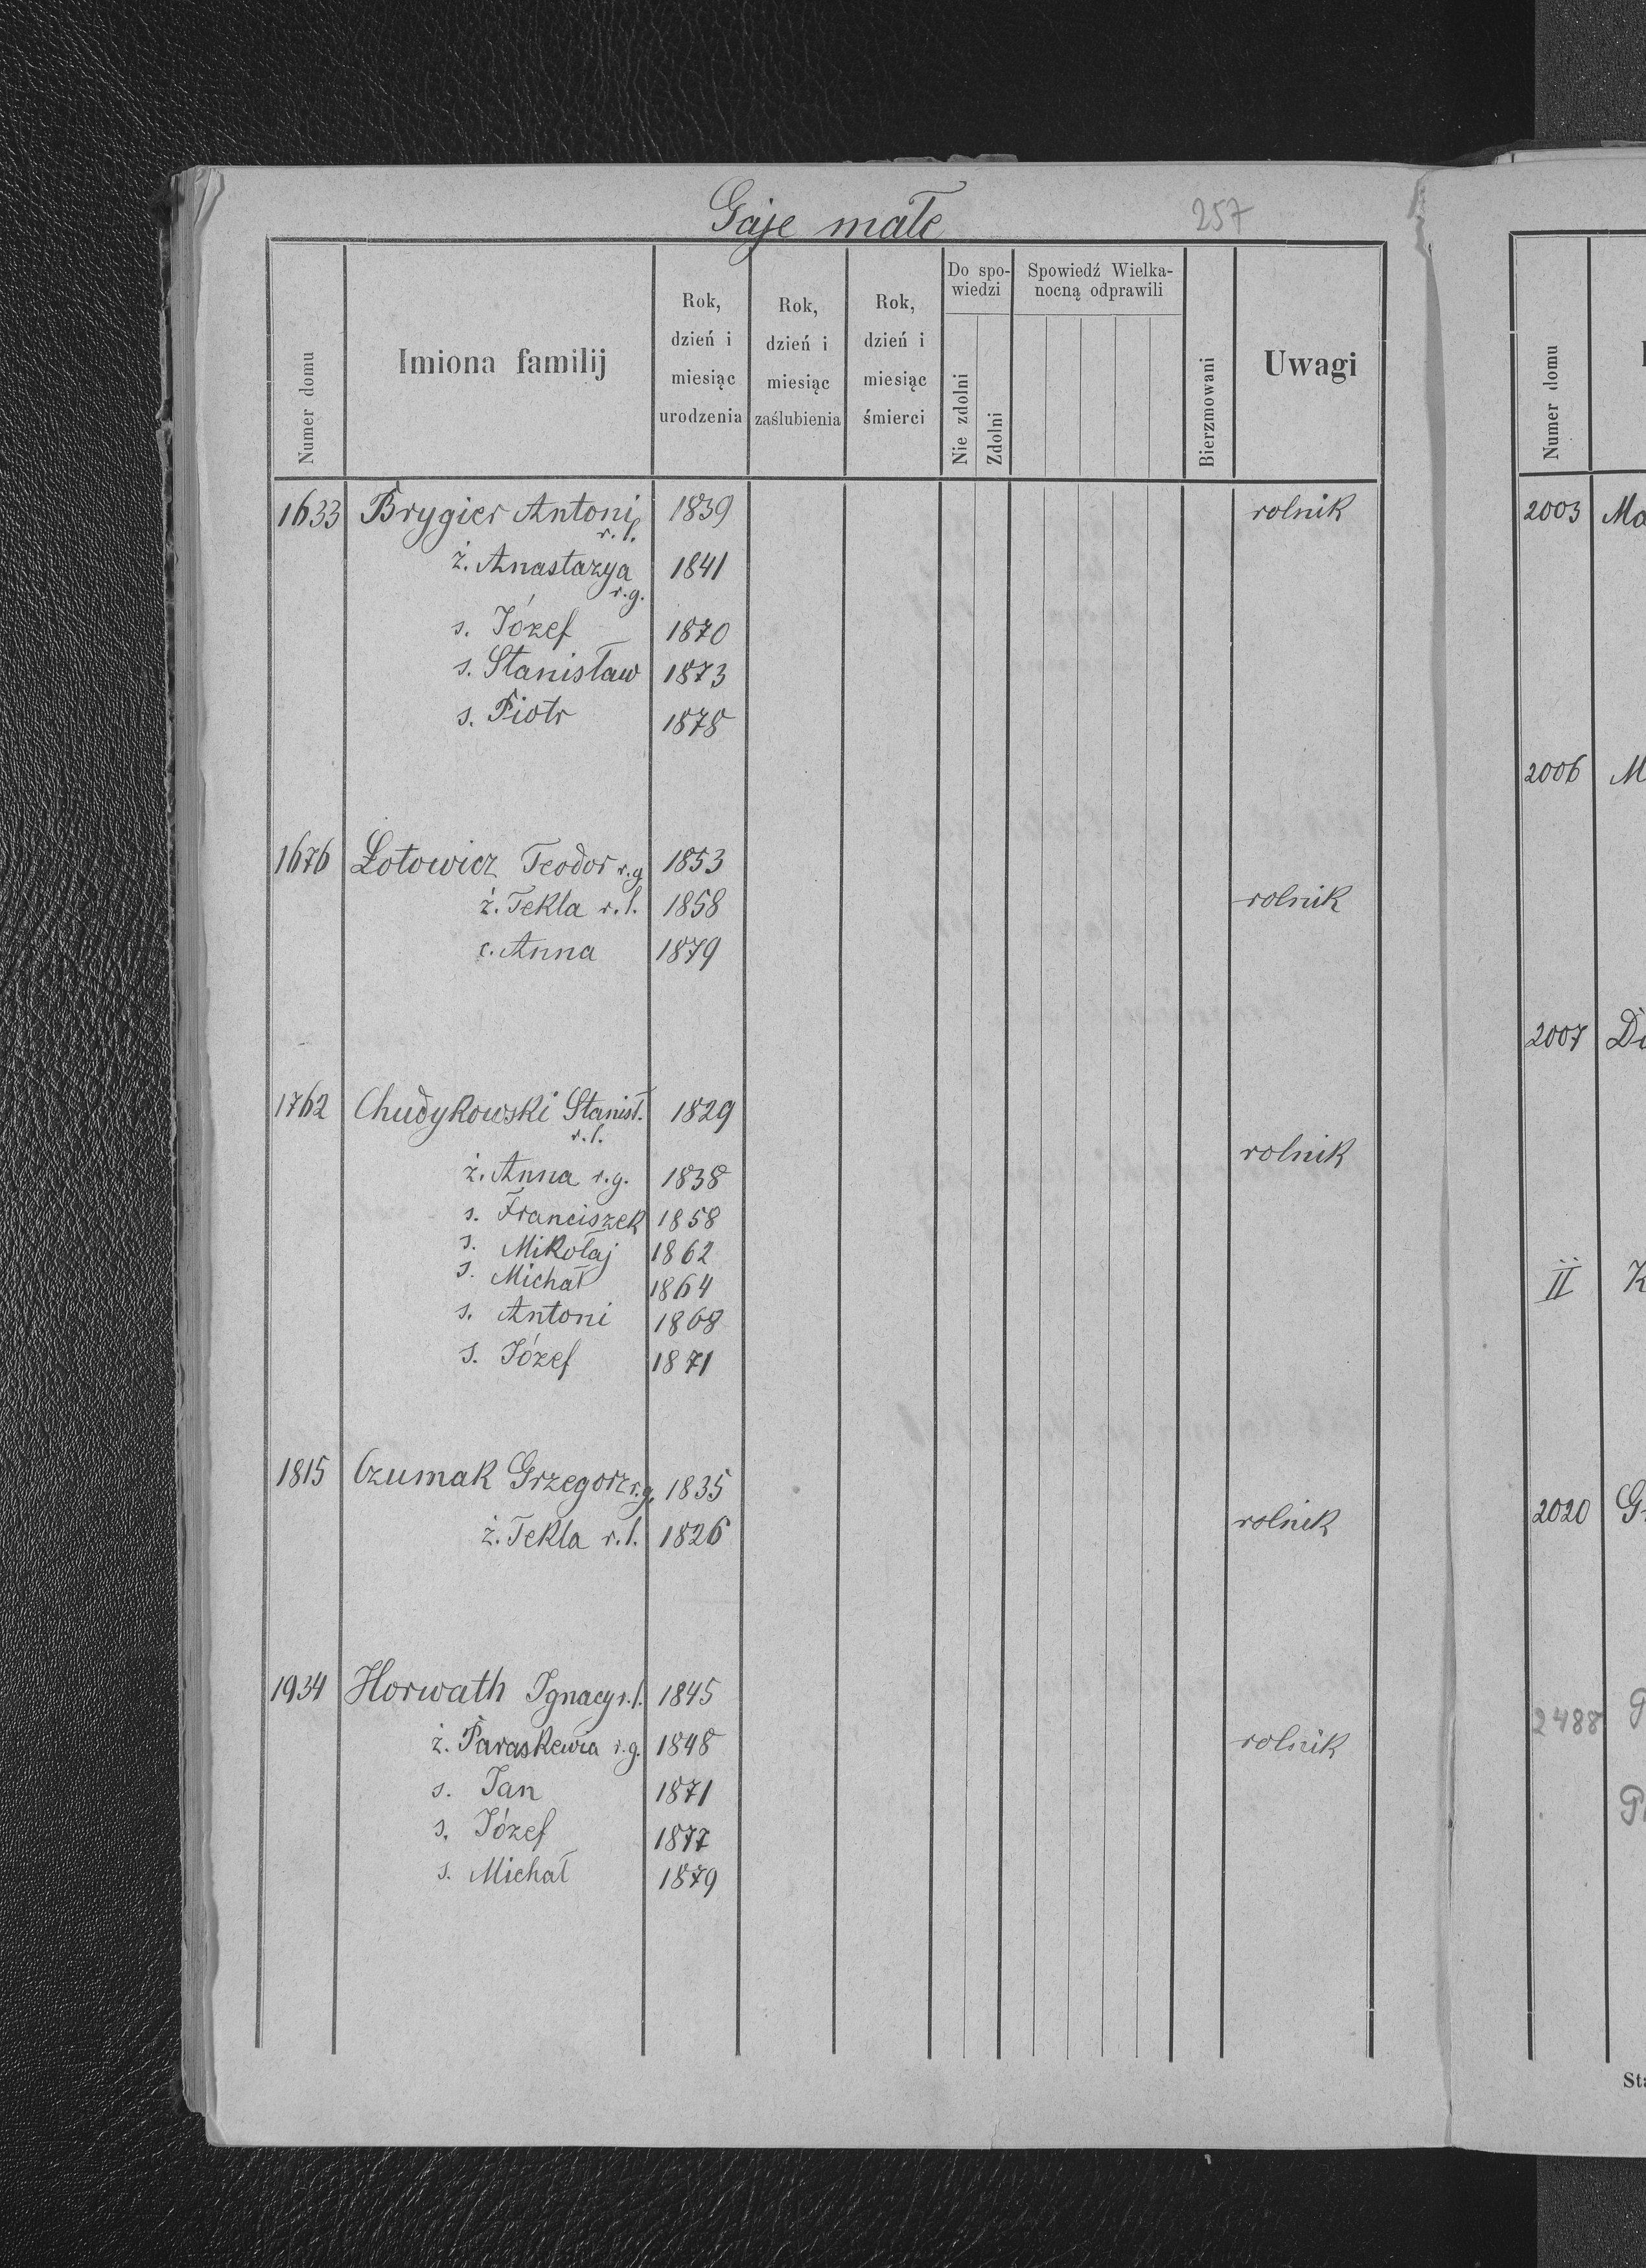 Gaje małe
257
Numer domu
Imiona familij
Rok, dzień i miesiąc urodzenia
Rok, dzień i miesiąc zaślubienia
Rok, dzień i miesiąc śmierci
Do spo-
wiedzi
Nie zdolni
Zdolni
Spowiedź Wielka-
nocną odprawili
Bierzmowani
Uwagi
1633 Brygier Antoni 1839 rolnik
r. l.
ż. Anastazya 1841
r. g.
s. Józef 1870
s. Stanisław 1873
s. Piotr 1878
1676 Łotowicz Teodor r. g 1853
ż. Tekla r. l. 1858 rolnik
c. Anna 1879
1762 Chudykowski Stanisł. 1829
r. l.
rolnik
ż. Anna r. g. 1838
s. Franciszek 1858
s. Mikołaj 1862
s. Michał 1864
s. Antoni 1868
s. Józef 1871
1815 Czumak Grzegorz r. g. 1835
ż. Tekla r. l. 1826 rolnik
1934 Horwath Ignacy r. l. 1845
ż. Paraskewia r. g. 1848 rolnik
s. Jan 1871
s. Józef 1877
s. Michał 1879
Numer domu
2003 Ma
2006 M
2007 Di
II K
2020 G
2488
Sta